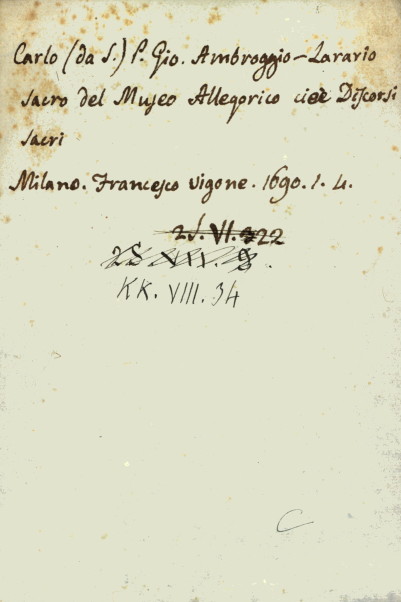 Carlo (da S.) P. Gio. Ambroggio - Larario
sacro del Museo Allegorico cioè Discorsi
sacri
Milano. Francesco Vigone. 1690. 1. 4.
2S. VI. 22
KK. VIII. 34
C